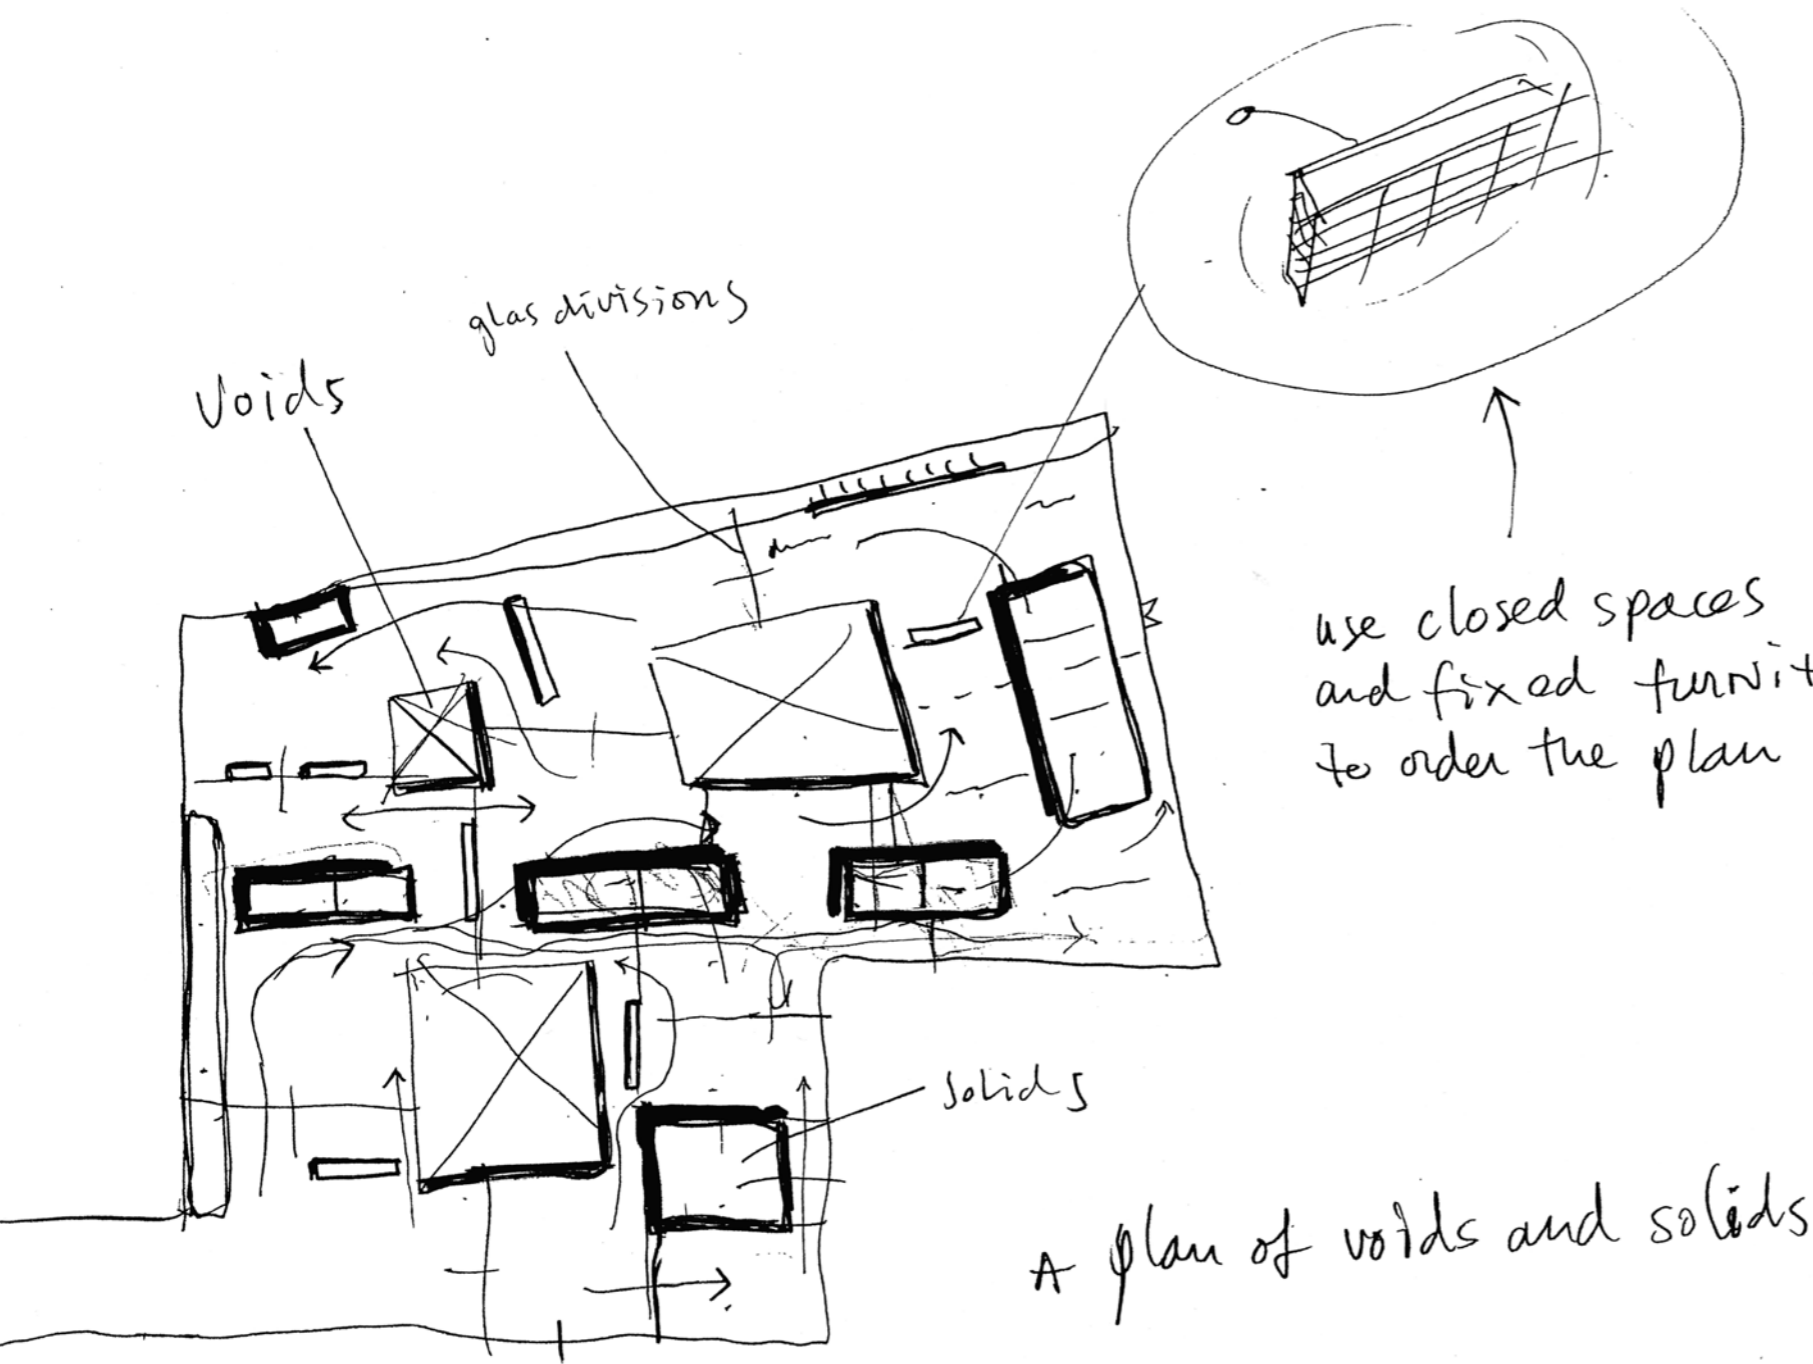 glas divisions
Voids
use closed spaces
and fixed furnit
to order the plan
solids
A plan of voids and solids